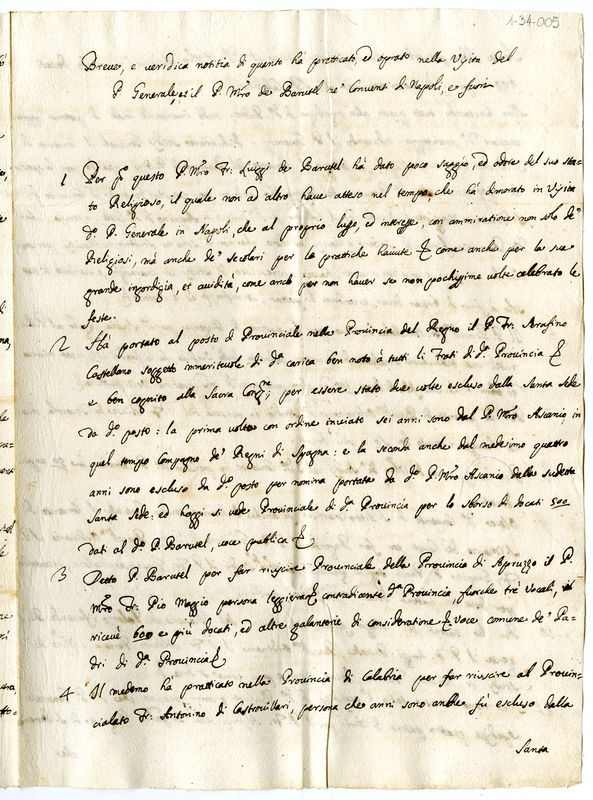 1-34-005
Breve, e veridica notitia di quanto hà pratticato, ed oprato nella Visita del
P. Generale, il P. Mro de Barutel ne' Conventi di Napoli, e fuori
1 Per pº questo P. Mro Fr. Luiggi de Barutel hà dato poco saggio, ed odore del suo sta=
to Religioso, il quale non ad altro have atteso nel tempo, che hà dimorato in Visita
dº P. Generale in Napoli, che al proprio lusso, ed interesse, con ammiratione non solo de'
Religiosi, mà anche de' secolari per le prattiche havute & come anche per la sua
grande ingordigia, et avidità, come anco per non haver se non pochissime volte celebrato le
feste.
2 Hà portato al posto di Provinciale nella Provincia del Regno il P. Fr. Serafino
Castellano soggetto immeritevole di dª carica ben noto à tutti li Frati di dª Provincia &
e ben cognito alla Sacra Congne; per essere stato due volte escluso dalla Santa Sede
da dº posto: la prima volta con ordine inviato sei anni sono dal P. Mro Ascanio, in
quel tempo Compagno de' Regni di Spagna: e la seconda anche dal medesimo quattro
anni sono escluso da dº posto per nomina portata da dº P. Mro Ascanio della sudetta
Santa Sede: ed hoggi si vede Provinciale di dª Provincia per lo sborso di docati 500
dati al dº P. Barutel, voce publica &
3 Detto P. Barutel per far riuscire Provinciale della Provincia di Apruzzo il P.
Mro Fr. Pio Maggio persona leggiera & contradicente dª Provincia fuorche tre Vocali,
ricevè 600 e più docati, ed altre galanterie di consideratione & voce comune de' Pa=
dri di dª Provincia &
4 Il medemo hà pratticato nella Provincia di Calabria per far riuscire al Provin=
cialato Fr. Antonino di Castrovillari, persona che anni sono anche fù escluso dalla
Santa